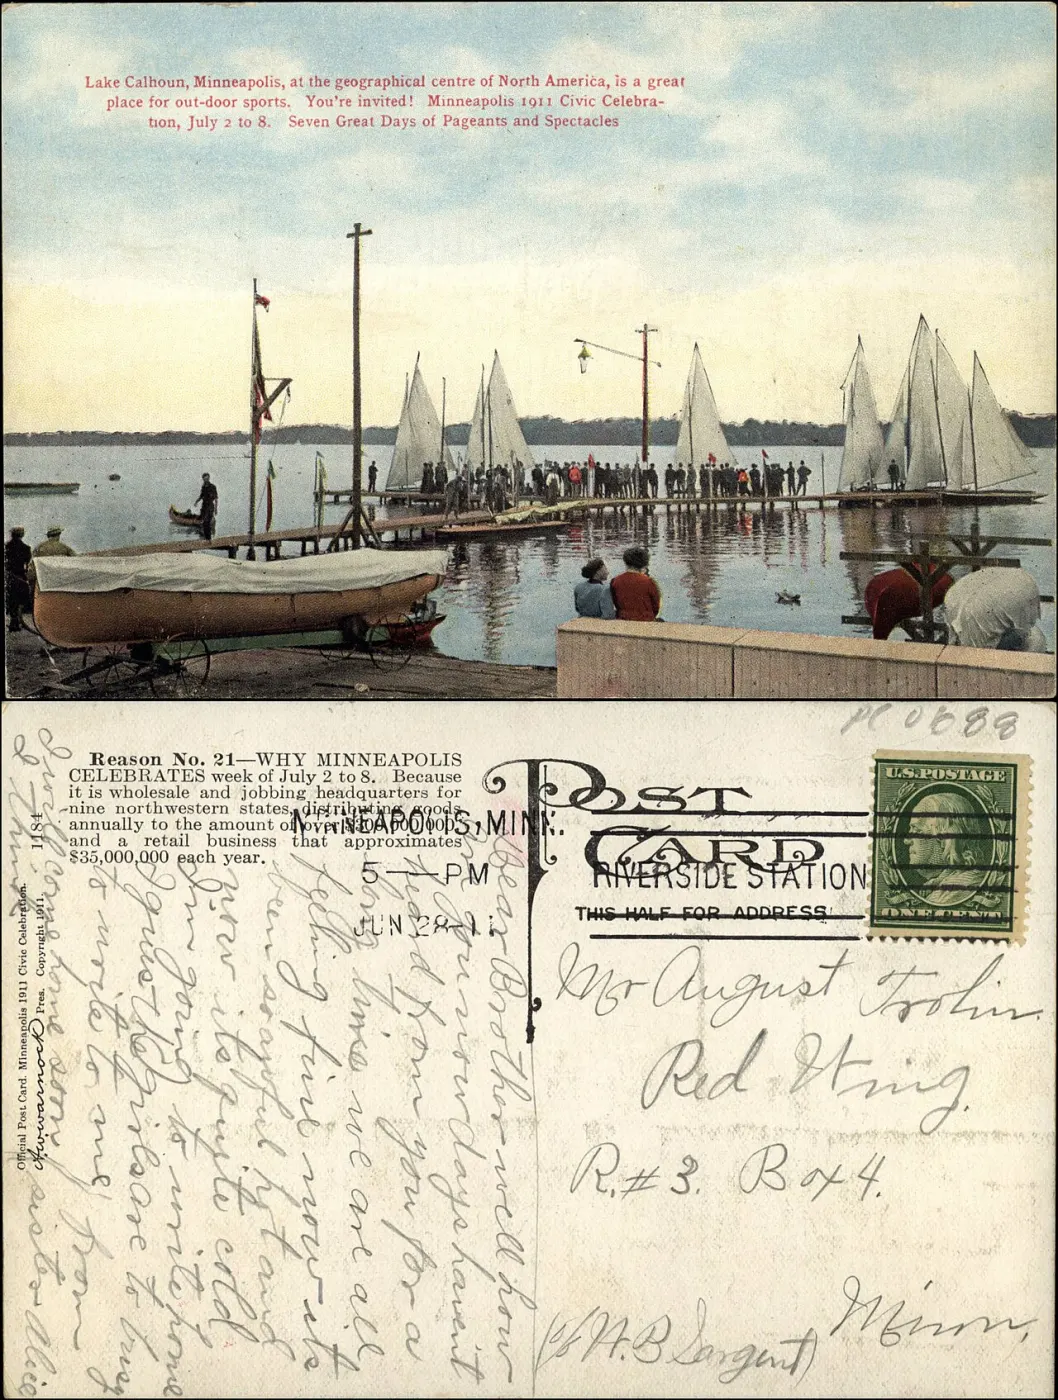 Lake Calhoun, Minneapolis, at the geographical centre of North America, is a great
place for out-door sports. You're invited! Minneapolis 1911 Civic Celebra-
tion, July 2 to 8. Seven Great Days of Pageants and Spectacles
PC 0688
Reason No. 21—WHY MINNEAPOLIS
CELEBRATES week of July 2 to 8. Because
it is wholesale and jobbing headquarters for
nine northwestern states, distributing goods
annually to the amount of over
and a retail business that approximates
$35,000,000 each year.
MINNEAPOLIS, MINN.
5—PM
JUN 28-11
RIVERSIDE STATION
POST
CARD
THIS HALF FOR ADDRESS
U.S. POSTAGE
ONE CENT
Mr August Trolin.
Red Wing.
R.#3. Box 4.
Minn.
(c/o H.B Sargent)
Dear Brother well how
are you now days havent
heard from you for a
long time we are all
felling fine now its
been so awful hot and
now its quite cold
Im going to write home
I guess to busy
to write to me From
I will come home soon sister Alice
I think
1184
Official Post Card. Minneapolis 1911 Civic Celebration.
Pres. Copyright 1911.